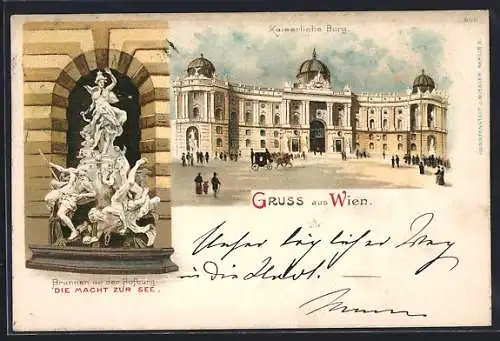 Kaiserliche Burg.
GRUSS aus WIEN.
Unser täglicher Weg
in die Stadt.
Brunnen an der Hofburg.
"DIE MACHT ZUR SEE".